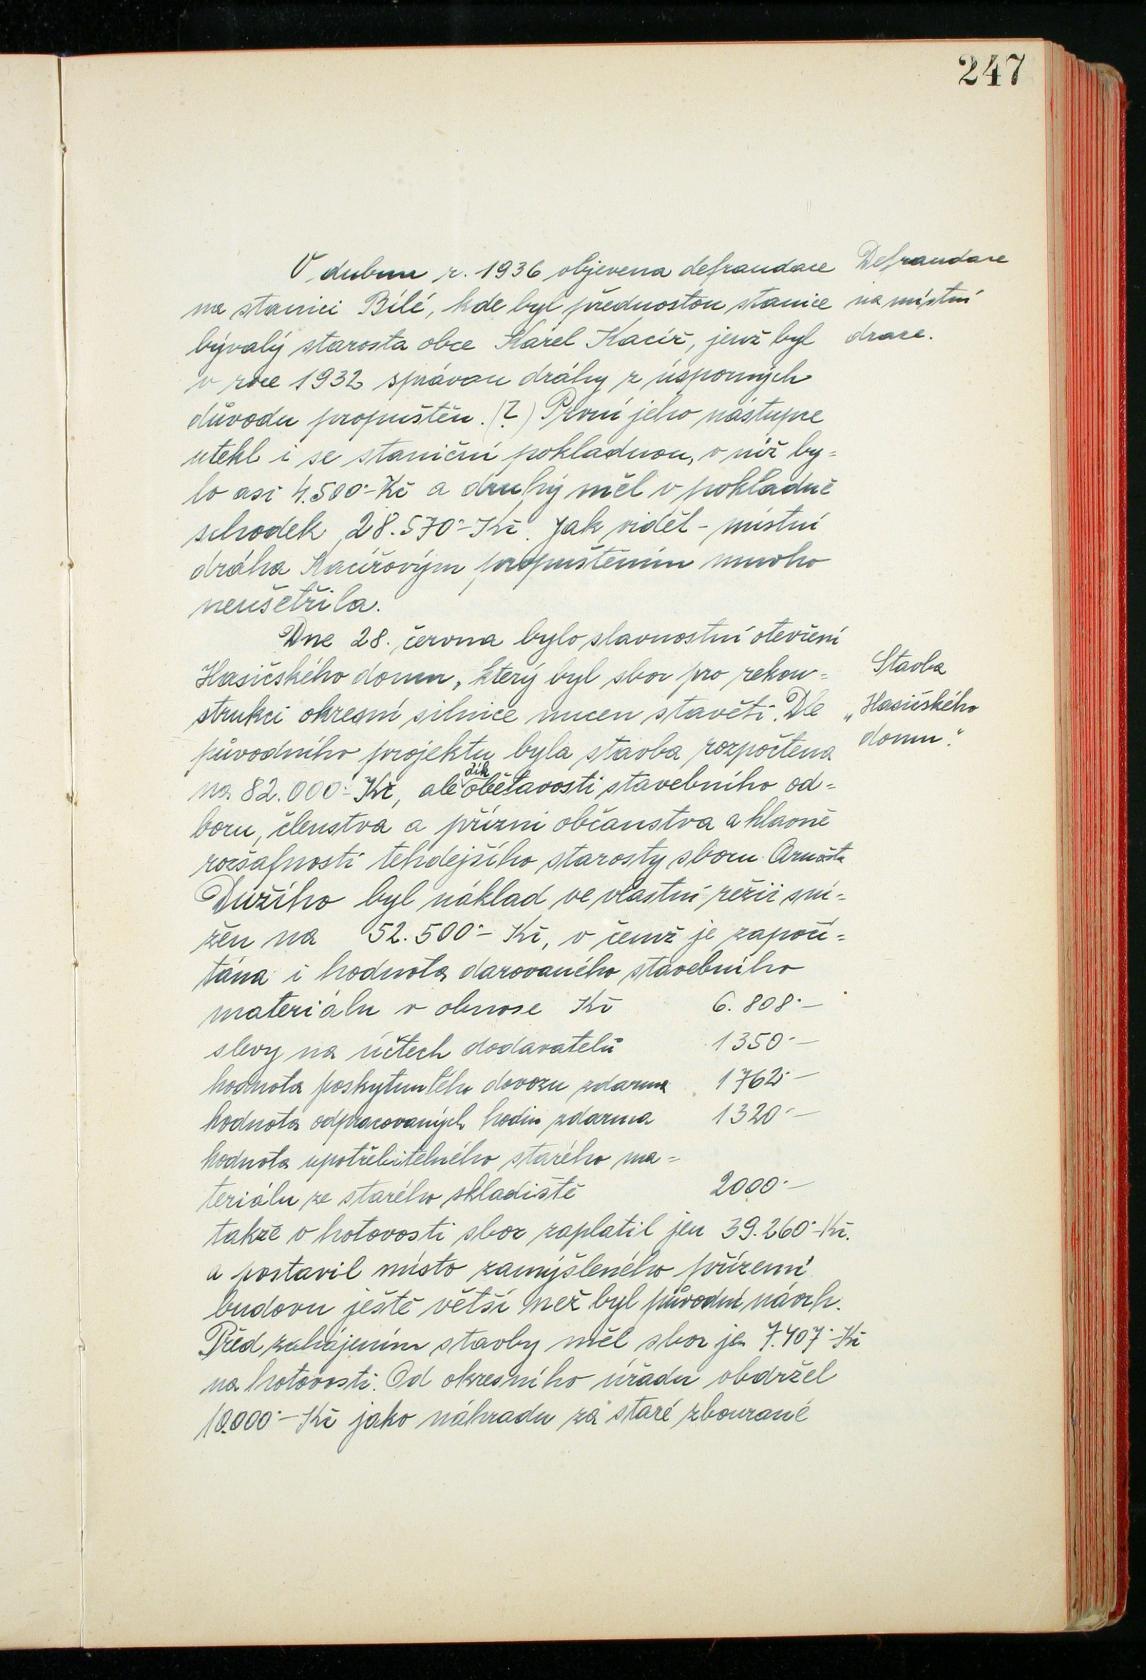 247
V dubnu r. 1936 objevena defraudace
na stanici Bílé, kde byl přednostou stanice
bývalý starosta obce Karel Kacíř, jenž byl
v roce 1932 správou dráhy z úsporných
důvodu propuštěn. (?) První jeho nástupce
utekl i se staniční pokladnou, v níž by-
lo asi 4.500·- Kč a druhý měl v pokladně
schodek 28.570·- Kč. Jak viděl - místní
dráha Kacířovým propuštěním mnoho
neušetřila.
Defraudace
na místní
draze.
Dne 28. června bylo slavnostní otevření
Hasičského domu, který byl sbor pro rekon-
strukci okresní silnice nucen stavěti. Dle
původního projektu byla stavba rozpočtena
na 82.000·- Kč, ale dík obětavosti stavebního od-
boru, členstva a přízni občanstva a hlavně
rozšafnosti tehdejšího starosty sboru Arnošta
Dužího byl náklad ve vlastní režii sní-
žen na 52.500·- Kč, v čemž je započí-
tána i hodnota darovaného stavebního
materiálu v obnose Kč 6.808·-
slevy na účtech dodavatelů 1350·-
hodnota poskytnutého dovozu zdarma 1762·-
hodnota odpracovaných hodin zdarma 1320·-
hodnota upotřebitelného starého ma-
teriálu ze starého skladiště 2000·-
takže v hotovosti sbor zaplatil jen 39.260·- Kč.
a postavil místo zamýšleného přízemí
budovu ještě větší než byl původní návrh.
Před zahájením stavby měl sbor jen 7.407·- Kč
na hotovosti. Od okresního úřadu obdržel
10.000·- Kč jako náhradu za staré zbourané
Stavba
„Hasičského
domu".